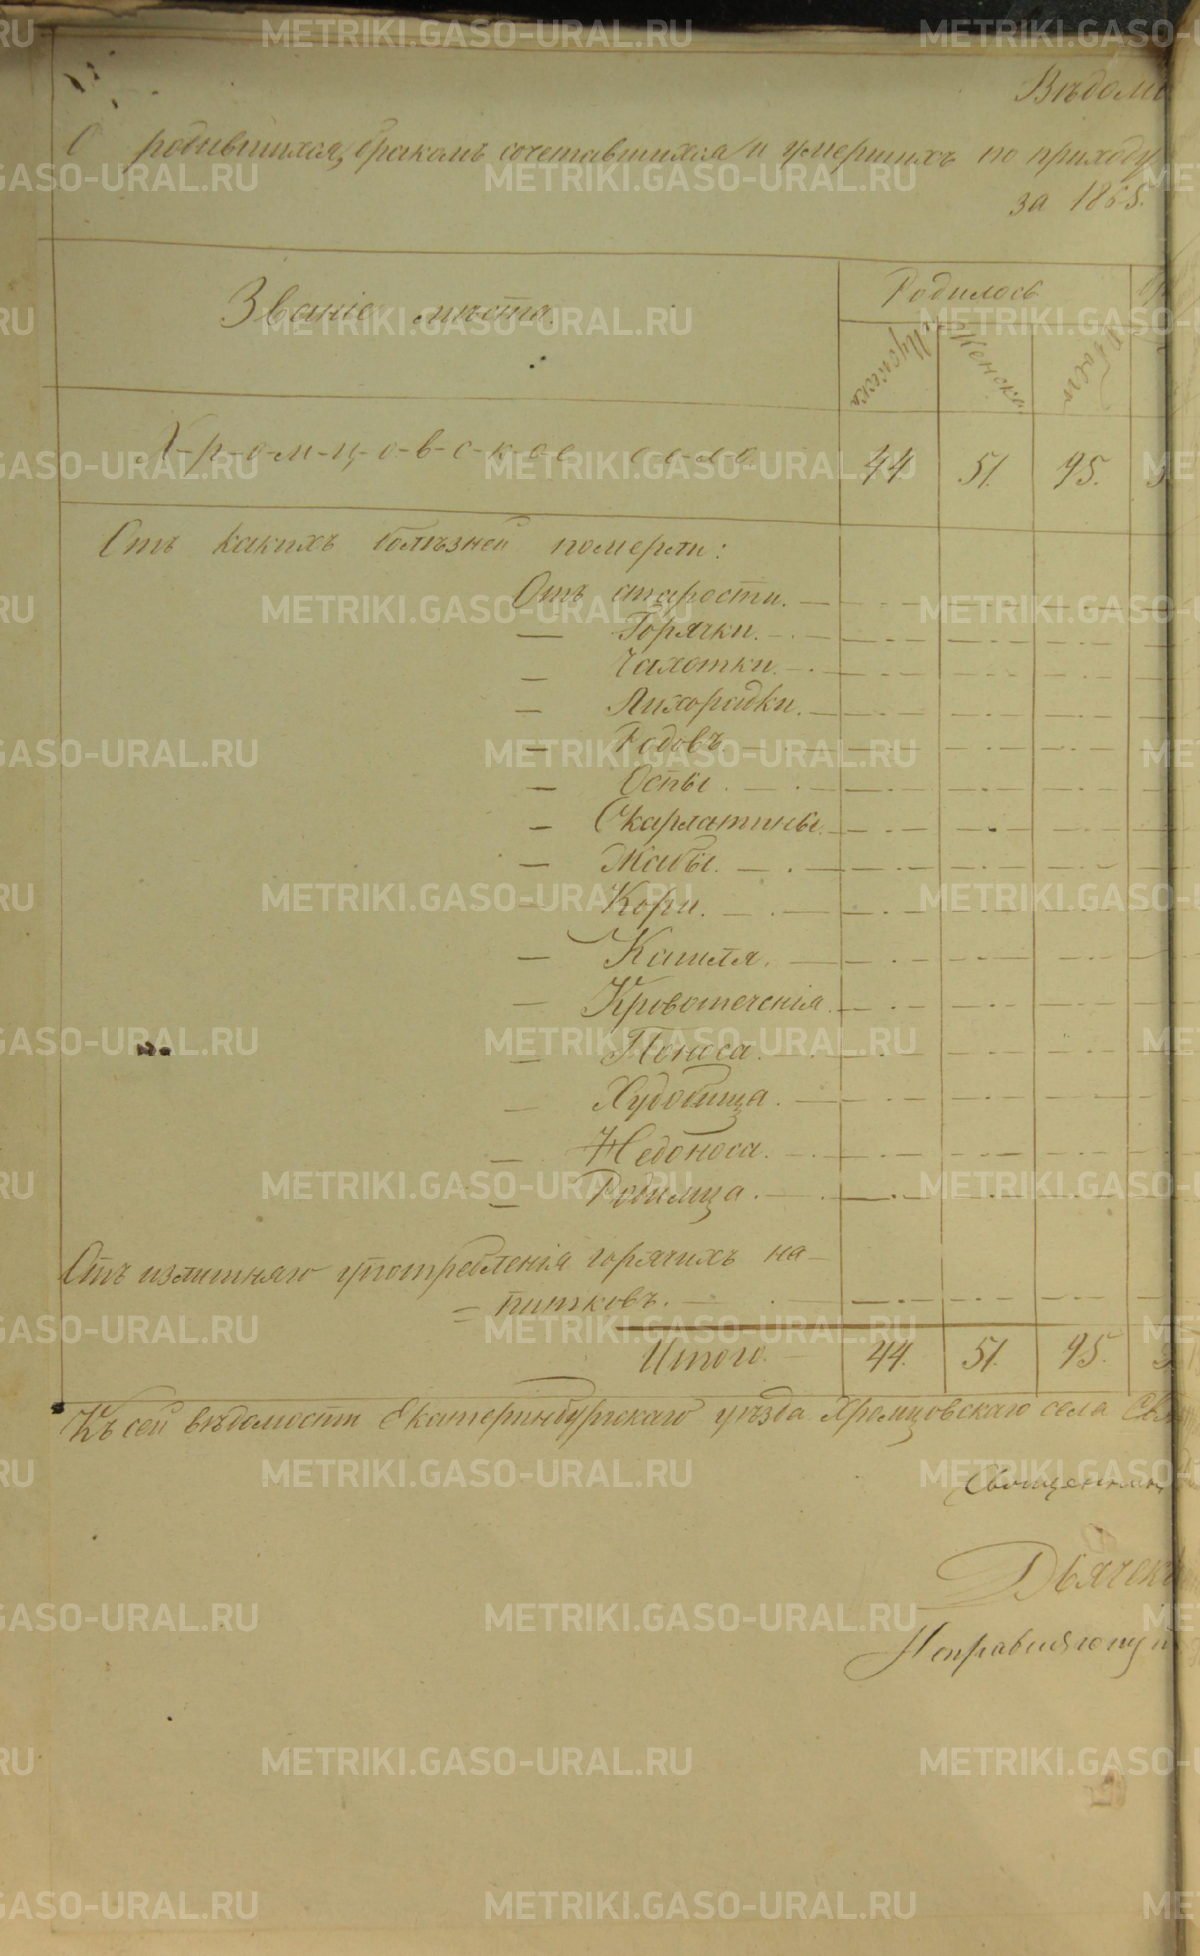 Вѣдомо
О родившихся, бракомъ сочетавшихся и умершихъ по приходу
за 1865.
Званіе мѣста.
Родилось
Мужска
Женска
Обоего
Хромцовское село
44. 51. 95. 3
Отъ какихъ болѣзней померли:
Отъ старости.
— Горячки.
— Чахотки.
— Лихорадки.
— Родовъ.
— Оспы.
— Скарлатины.
— Жабы.
— Кори.
— Кашля.
— Кровотеченія.
— Поноса.
— Худобища.
— Недоноса.
— Родимца.
Отъ излишняго употребленія горячихъ на-
= питковъ.
Итого. 44. 51. 95. 3
Къ сей вѣдомости Екатеринбургскаго уѣзда Хромцовскаго села Св
Священник
Дьячекъ
Исправляющій
METRIKI.GASO-URAL.RU